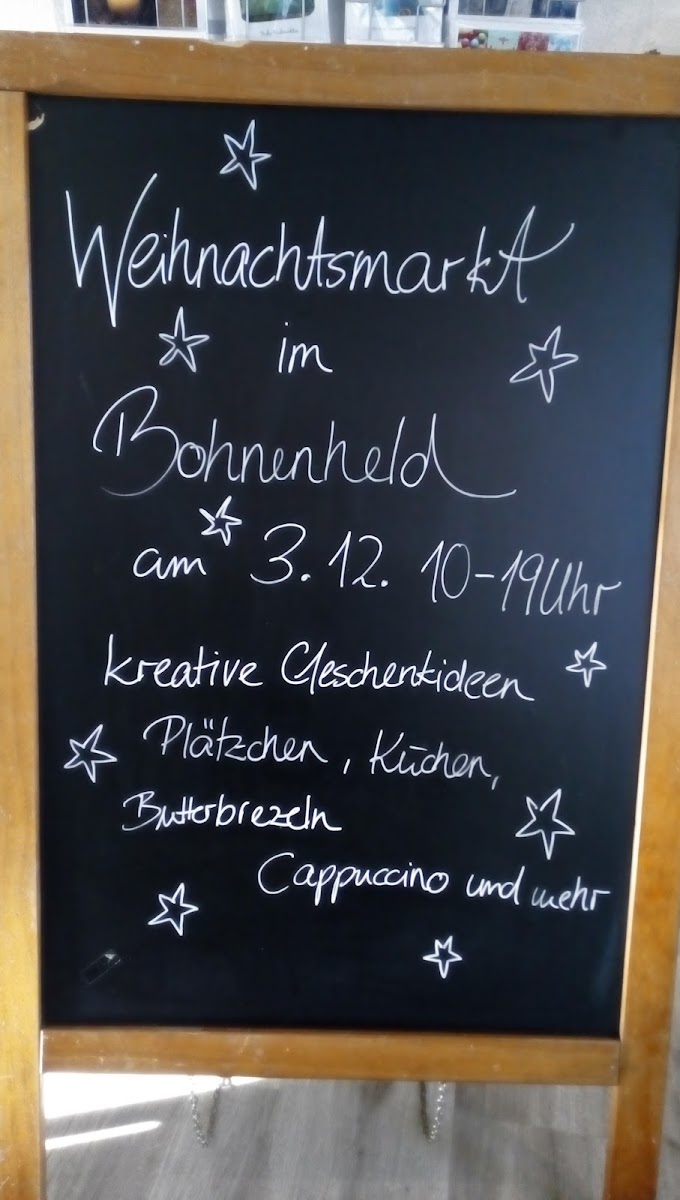 Weihnachtsmarkt
im
Bohnenheld
am 3.12. 10-19Uhr
kreative Geschenkideen
Plätzchen, Kuchen,
Butterbrezeln
Cappuccino und mehr